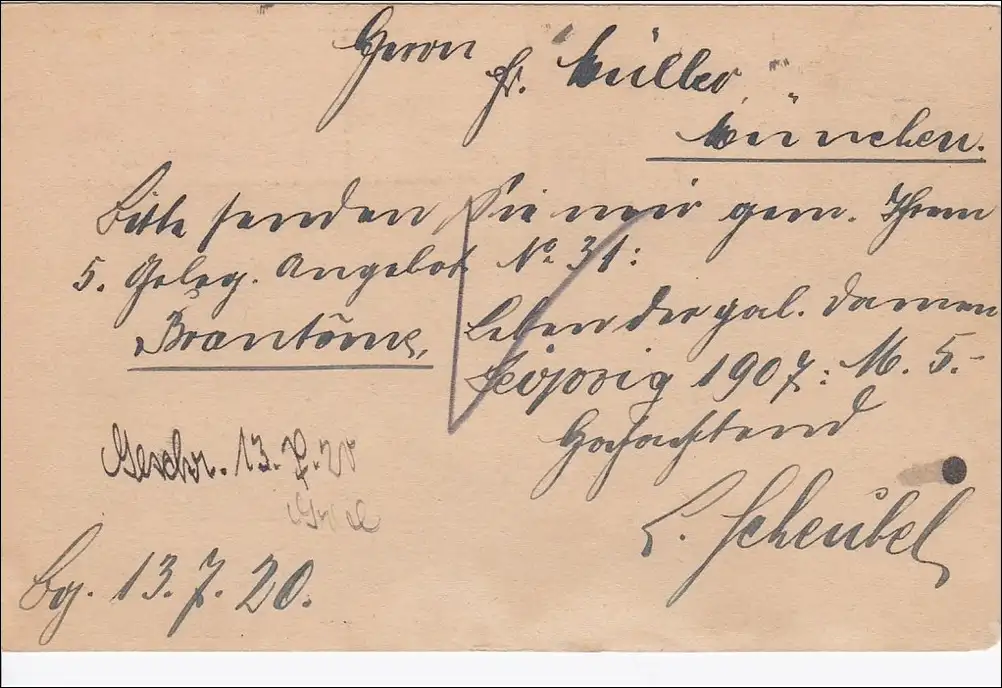 Herrn
Fr. Müller,
München.
Bitte senden Sie mir gem. Ihrem
5. Geleg. Angebot No. 31:
Brantôme, Leben der gal. Damen
Leipzig 1907: M. 5.-
Hochachtend
Geschr. 13.7.20
L. Scheubel
Bg. 13.7.20.